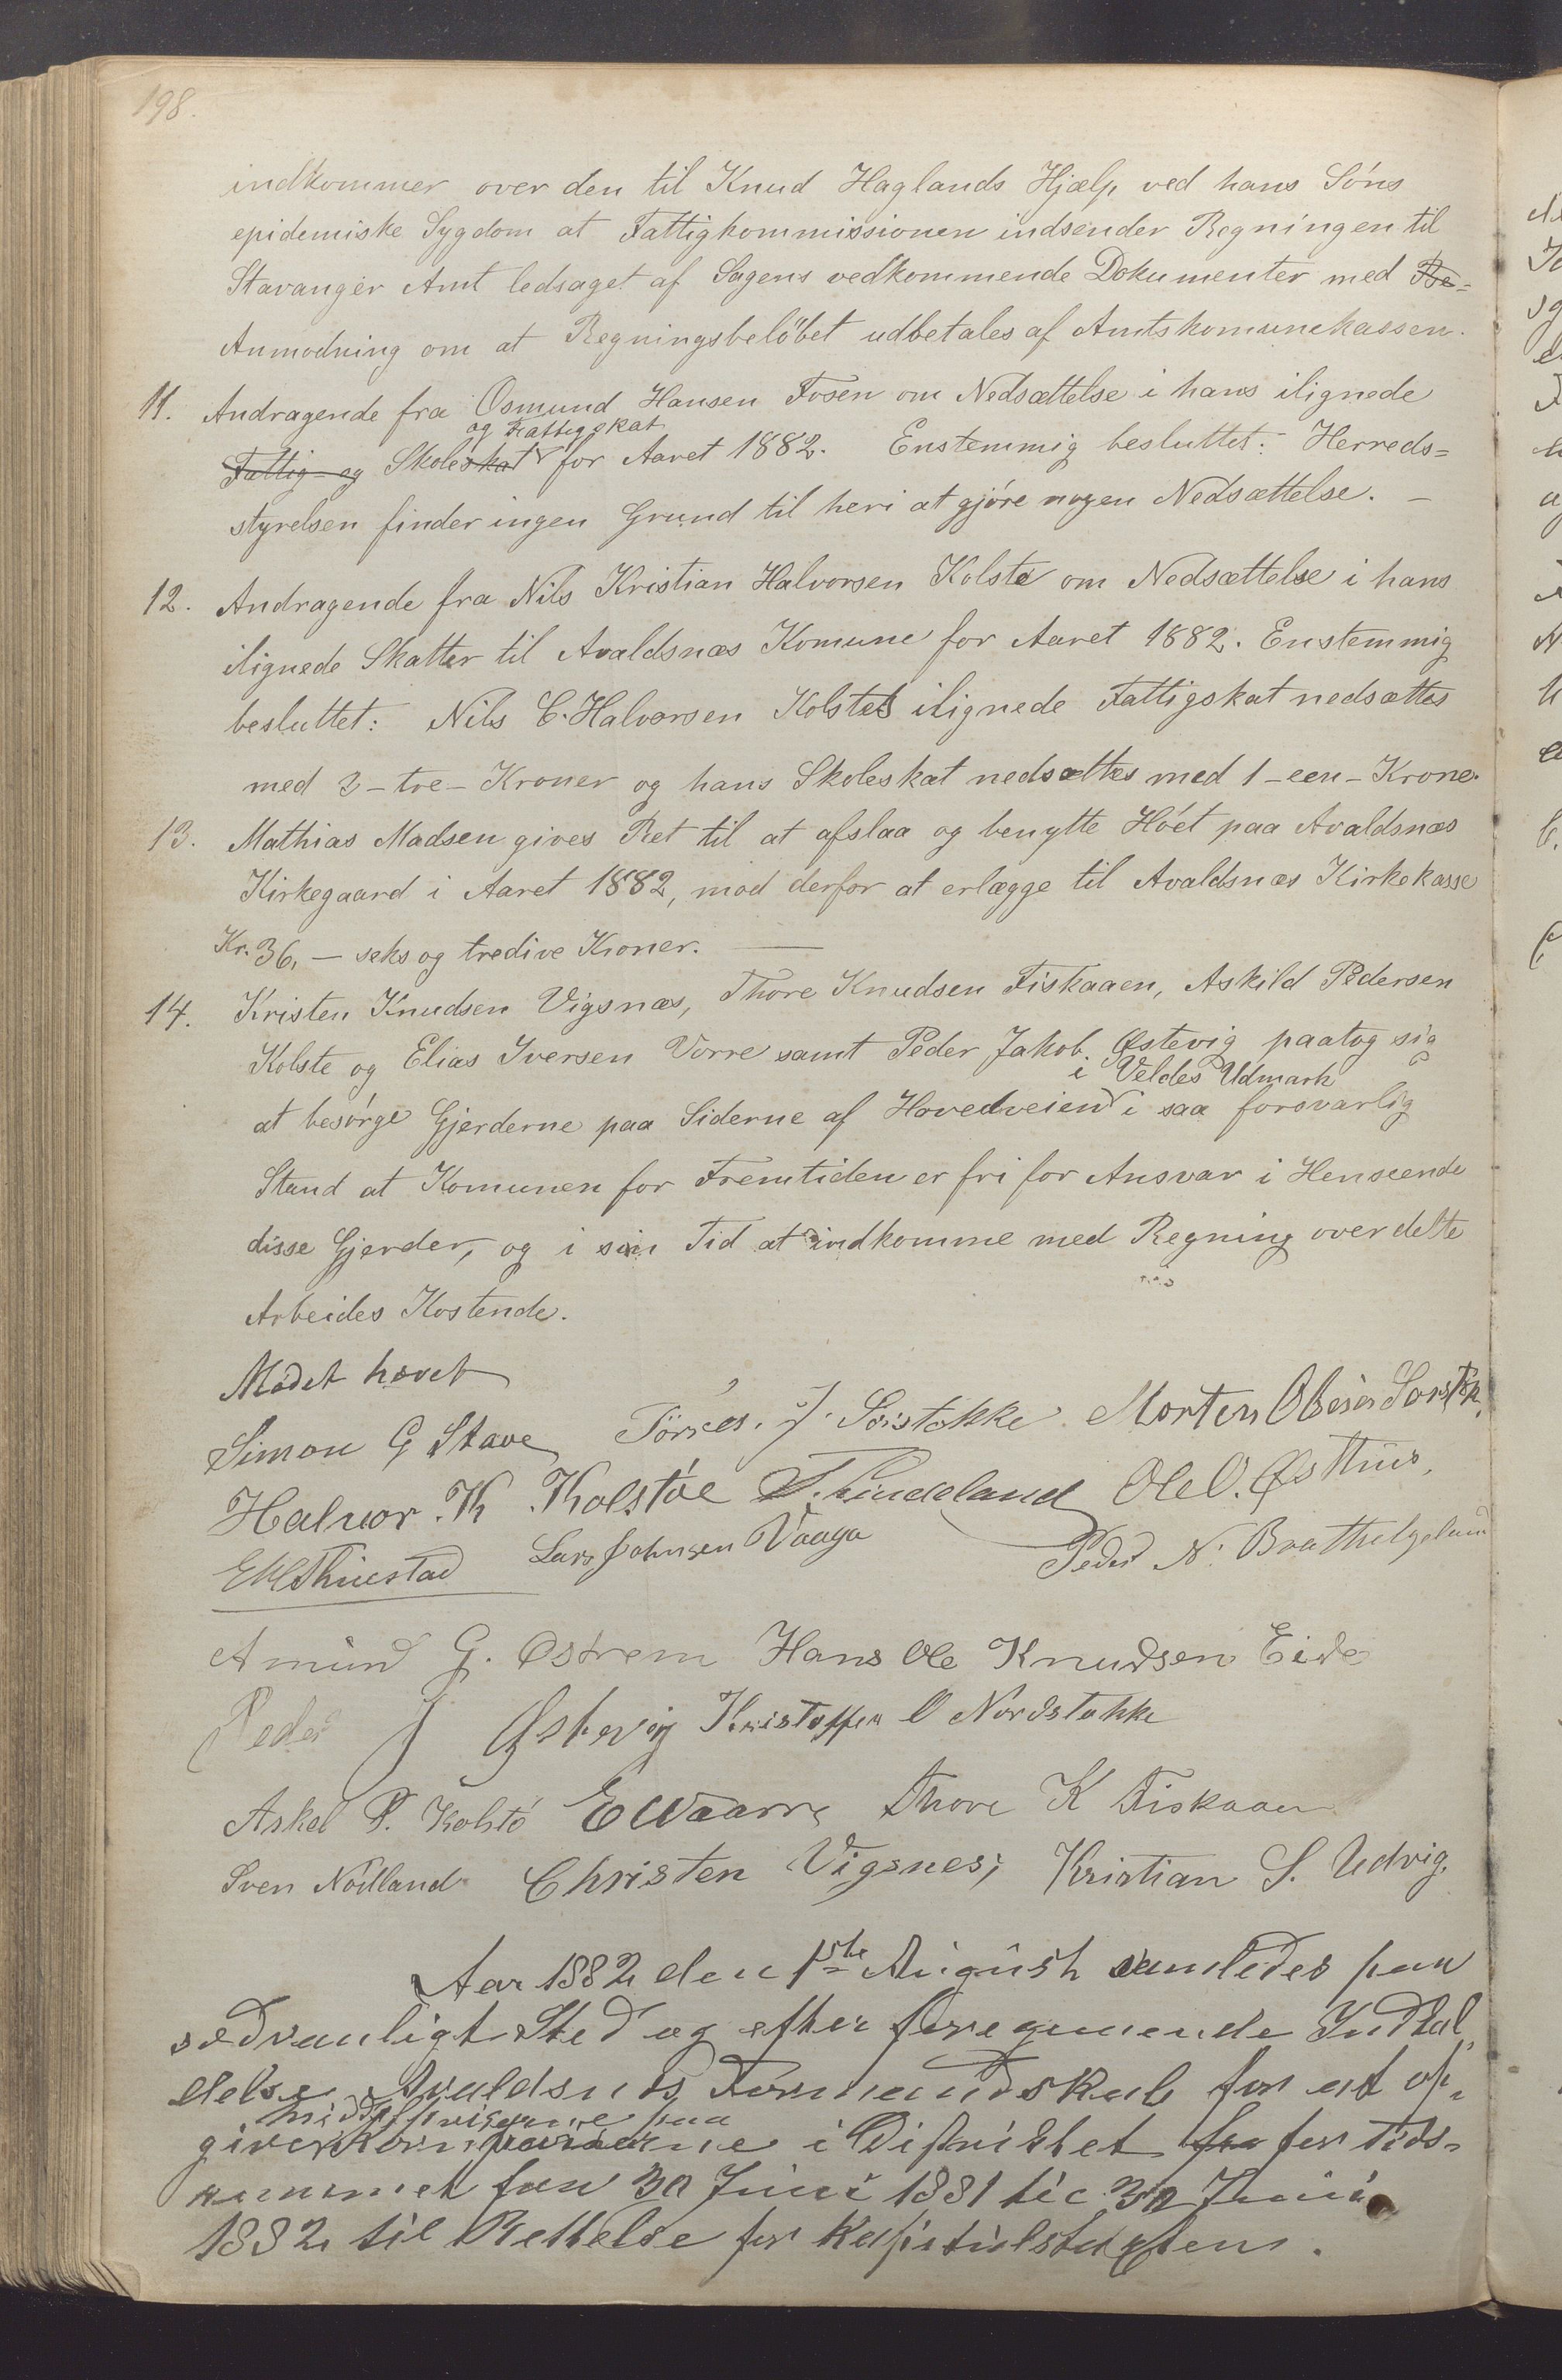 198.
indkommer over den til Knud Haglands Hjælp ved hans Søns
epidemiske Sygdom at Fattigkommissionen indsender Regningen til
Stavanger Amt ledsaget af Sagens vedkommende Dokumenter med Be-
Anmodning om at Regningsbeløbet udbetales af Amtskomunekassen.
11. Andragende fra Osmund Hansen Fosen om Nedsættelse i hans ilignede
og Fattigskat
Fattig- og Skoleskat for Aaret 1882. Enstemmig besluttet: Herreds=
styrelsen finder ingen Grund til heri at gjøre nogen Nedsættelse. —
12. Andragende fra Nils Kristian Halvorsen Kolstø om Nedsættelse i hans
ilignede Skatter til Avaldsnæs Komune for Aaret 1882. Enstemmig
besluttet: Nils C. Halvorsen Kolstøs ilignede Fattigskat nedsættes
med 3 - tre - Kroner og hans Skoleskat nedsættes med 1 - een - Krone.
13. Mathias Madsen gives Ret til at afslaa og benytte Høet paa Avaldsnæs
Kirkegaard i Aaret 1882, mod derfor at erlægge til Avaldsnæs Kirkekasse
Kr. 36, — seks og tredive Kroner. —
14. Kristen Knudsen Vigsnæs, Thore Knudsen Fiskaaen, Askild Pedersen
Kolstø og Elias Iversen Vorre samt Peder Jakob. Østevig paatog sig
i Veldes Udmark
at besørge Gjerderne paa Siderne af Hovedveien i saa forsvarlig
Stand at Komunen for Fremtiden er fri for Ansvar i Henseende
disse Gjerder, og i sin Tid at indkomme med Regning over dette
Arbeides Kostende.
Mødet hævet
Simon G Stave Törres. J. Sørstokke Morten Olsen
Halvor. K Kolstöe Lindeland Ole O. Østhus,
Lars Johnsen Vaaga Peder N. Bratthelgeland
Amund G. Østrem Hans Ole Knudsen Eide
Peder J Østevig Kristoffer O Nordstokke
Askel P. Kolstö E Waarre Thore K Fiskaaen
Sven Nödland Christen Vigsnes, Kristian S. Udvig.
Aar 1882 den 1ste August samledes paa
sædvanligt Sted og efter foregaaende Indkal„
delse Avaldsnæs Formandskab for at op„
middelpriserne paa
giver Korn i Distriktet fra for Tids=
rummet fra 30 Juni 1881 til 30 Juni
1882 til Rettelse for Kapitulstaxten.